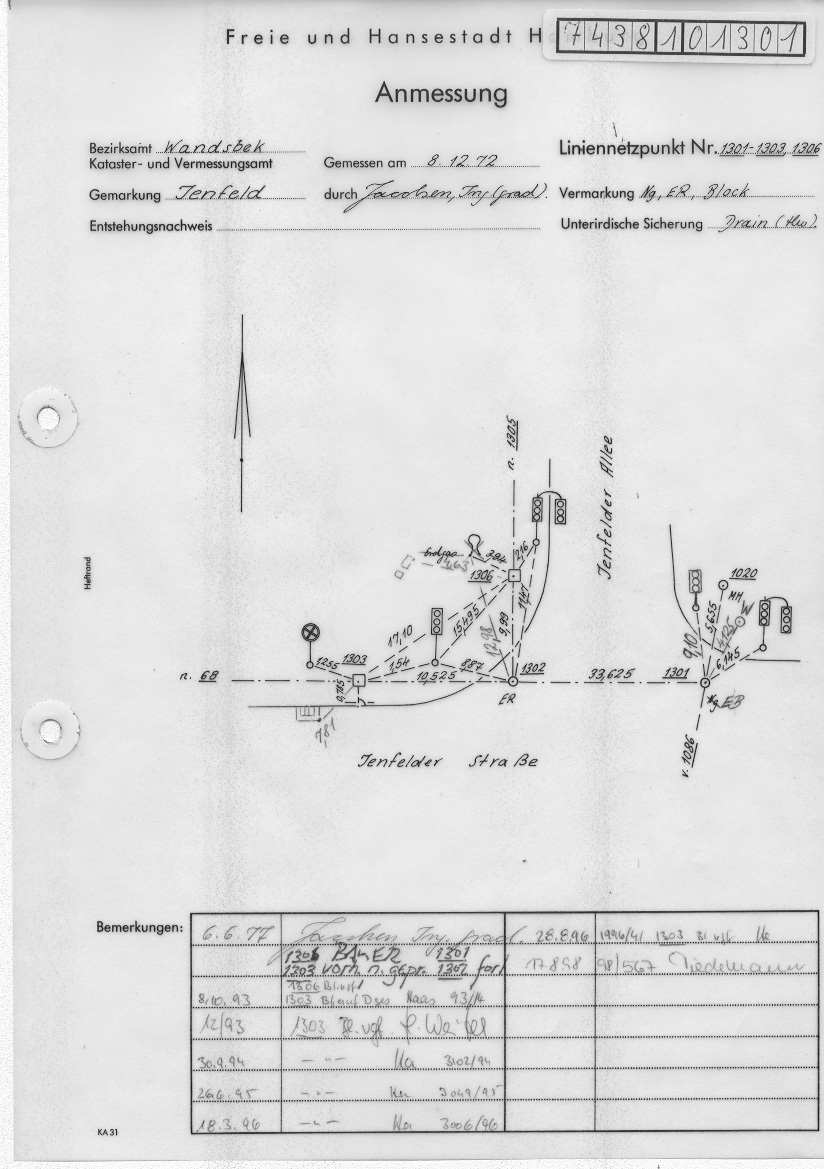 Freie und Hansestadt H
7438101301
Anmessung
Bezirksamt Wandsbek
Kataster- und Vermessungsamt
Gemessen am 8.12.72
Liniennetzpunkt Nr. 1301-1303, 1306
Gemarkung Jenfeld
durch Jacobsen, Ing. (grad).
Vermarkung Ng, ER, Block
Entstehungsnachweis
Unterirdische Sicherung Drain (tlw).
Heftrand
n. 1305
Jenfelder Allee
Erdgas
3,84
2,16
1306
1020
MH
W
17,10
15,495
12,98
9,99
11,47
9,10
5,655
4,125
6,145
1255
1303
1,54
9,87
1302
n. 68
10,525
33,625
1301
0,785
ER
Ng EB
7,81
v. 1086
Jenfelder Straße
Bemerkungen:
6.6.77 Jacobsen Ing. grad.
28.8.96 1996/41 1303 Bl. vgf. Ka
1306 BA n ER 1301
1303 vorh. n. gepr. 1302 fort
17.8.98 98/567 Tiedemann
1306 Bl. vgf
8.10.93 1303 Bl auf Dges Haas 93/14
12/93 1303 Bl. vgf.
30.9.94 — " — Ka 3102/94
26.6.95 — " — Ka 3049/95
18.3.96 — " — Ka 3006/96
KA 31